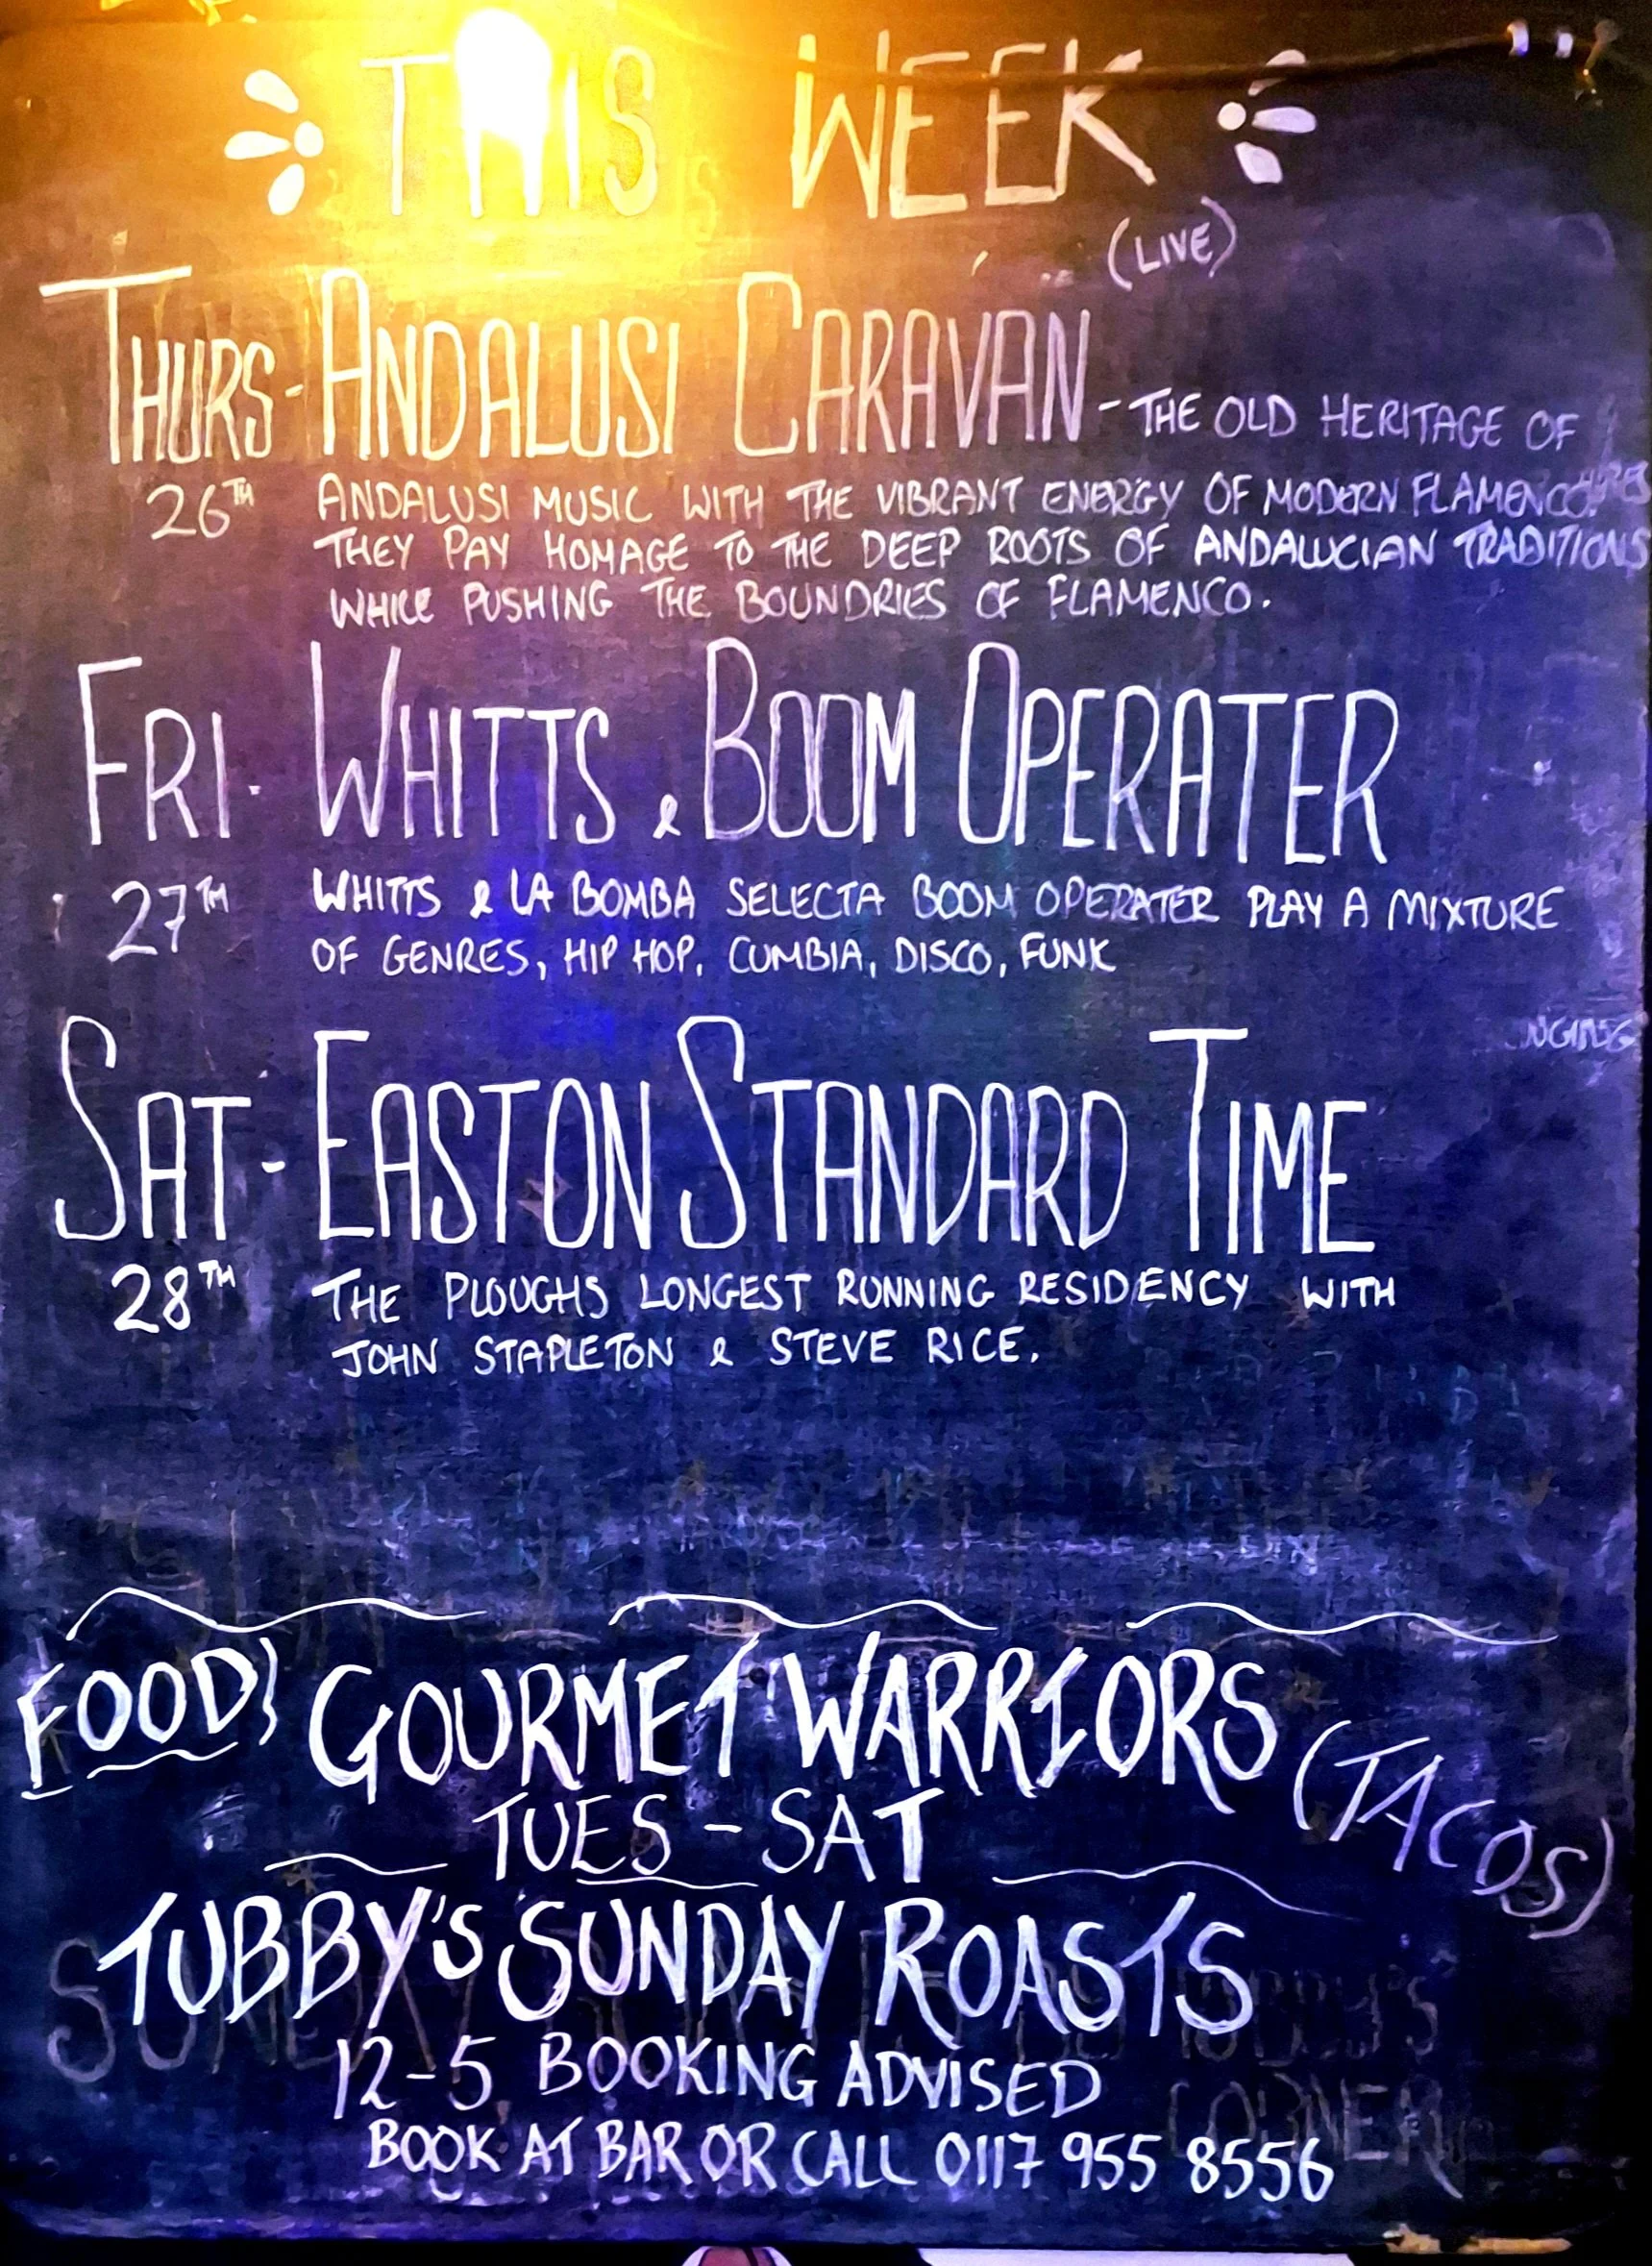 THIS WEEK
(LIVE)
THURS - ANDALUSI CARAVAN - THE OLD HERITAGE OF
26TH ANDALUSI MUSIC WITH THE VIBRANT ENERGY OF MODERN FLAMENCO.
THEY PAY HOMAGE TO THE DEEP ROOTS OF ANDALUCIAN TRADITIONS
WHILE PUSHING THE BOUNDRIES OF FLAMENCO.
FRI. WHITTS & BOOM OPERATER
27TH WHITTS & LA BOMBA SELECTA BOOM OPERATER PLAY A MIXTURE
OF GENRES, HIP HOP, CUMBIA, DISCO, FUNK
SAT - EASTON STANDARD TIME
28TH THE PLOUGHS LONGEST RUNNING RESIDENCY WITH
JOHN STAPLETON & STEVE RICE.
FOOD} GOURMET WARRIORS (TACOS)
TUES - SAT
TUBBY'S SUNDAY ROASTS
12-5 BOOKING ADVISED
BOOK AT BAR OR CALL 0117 955 8556